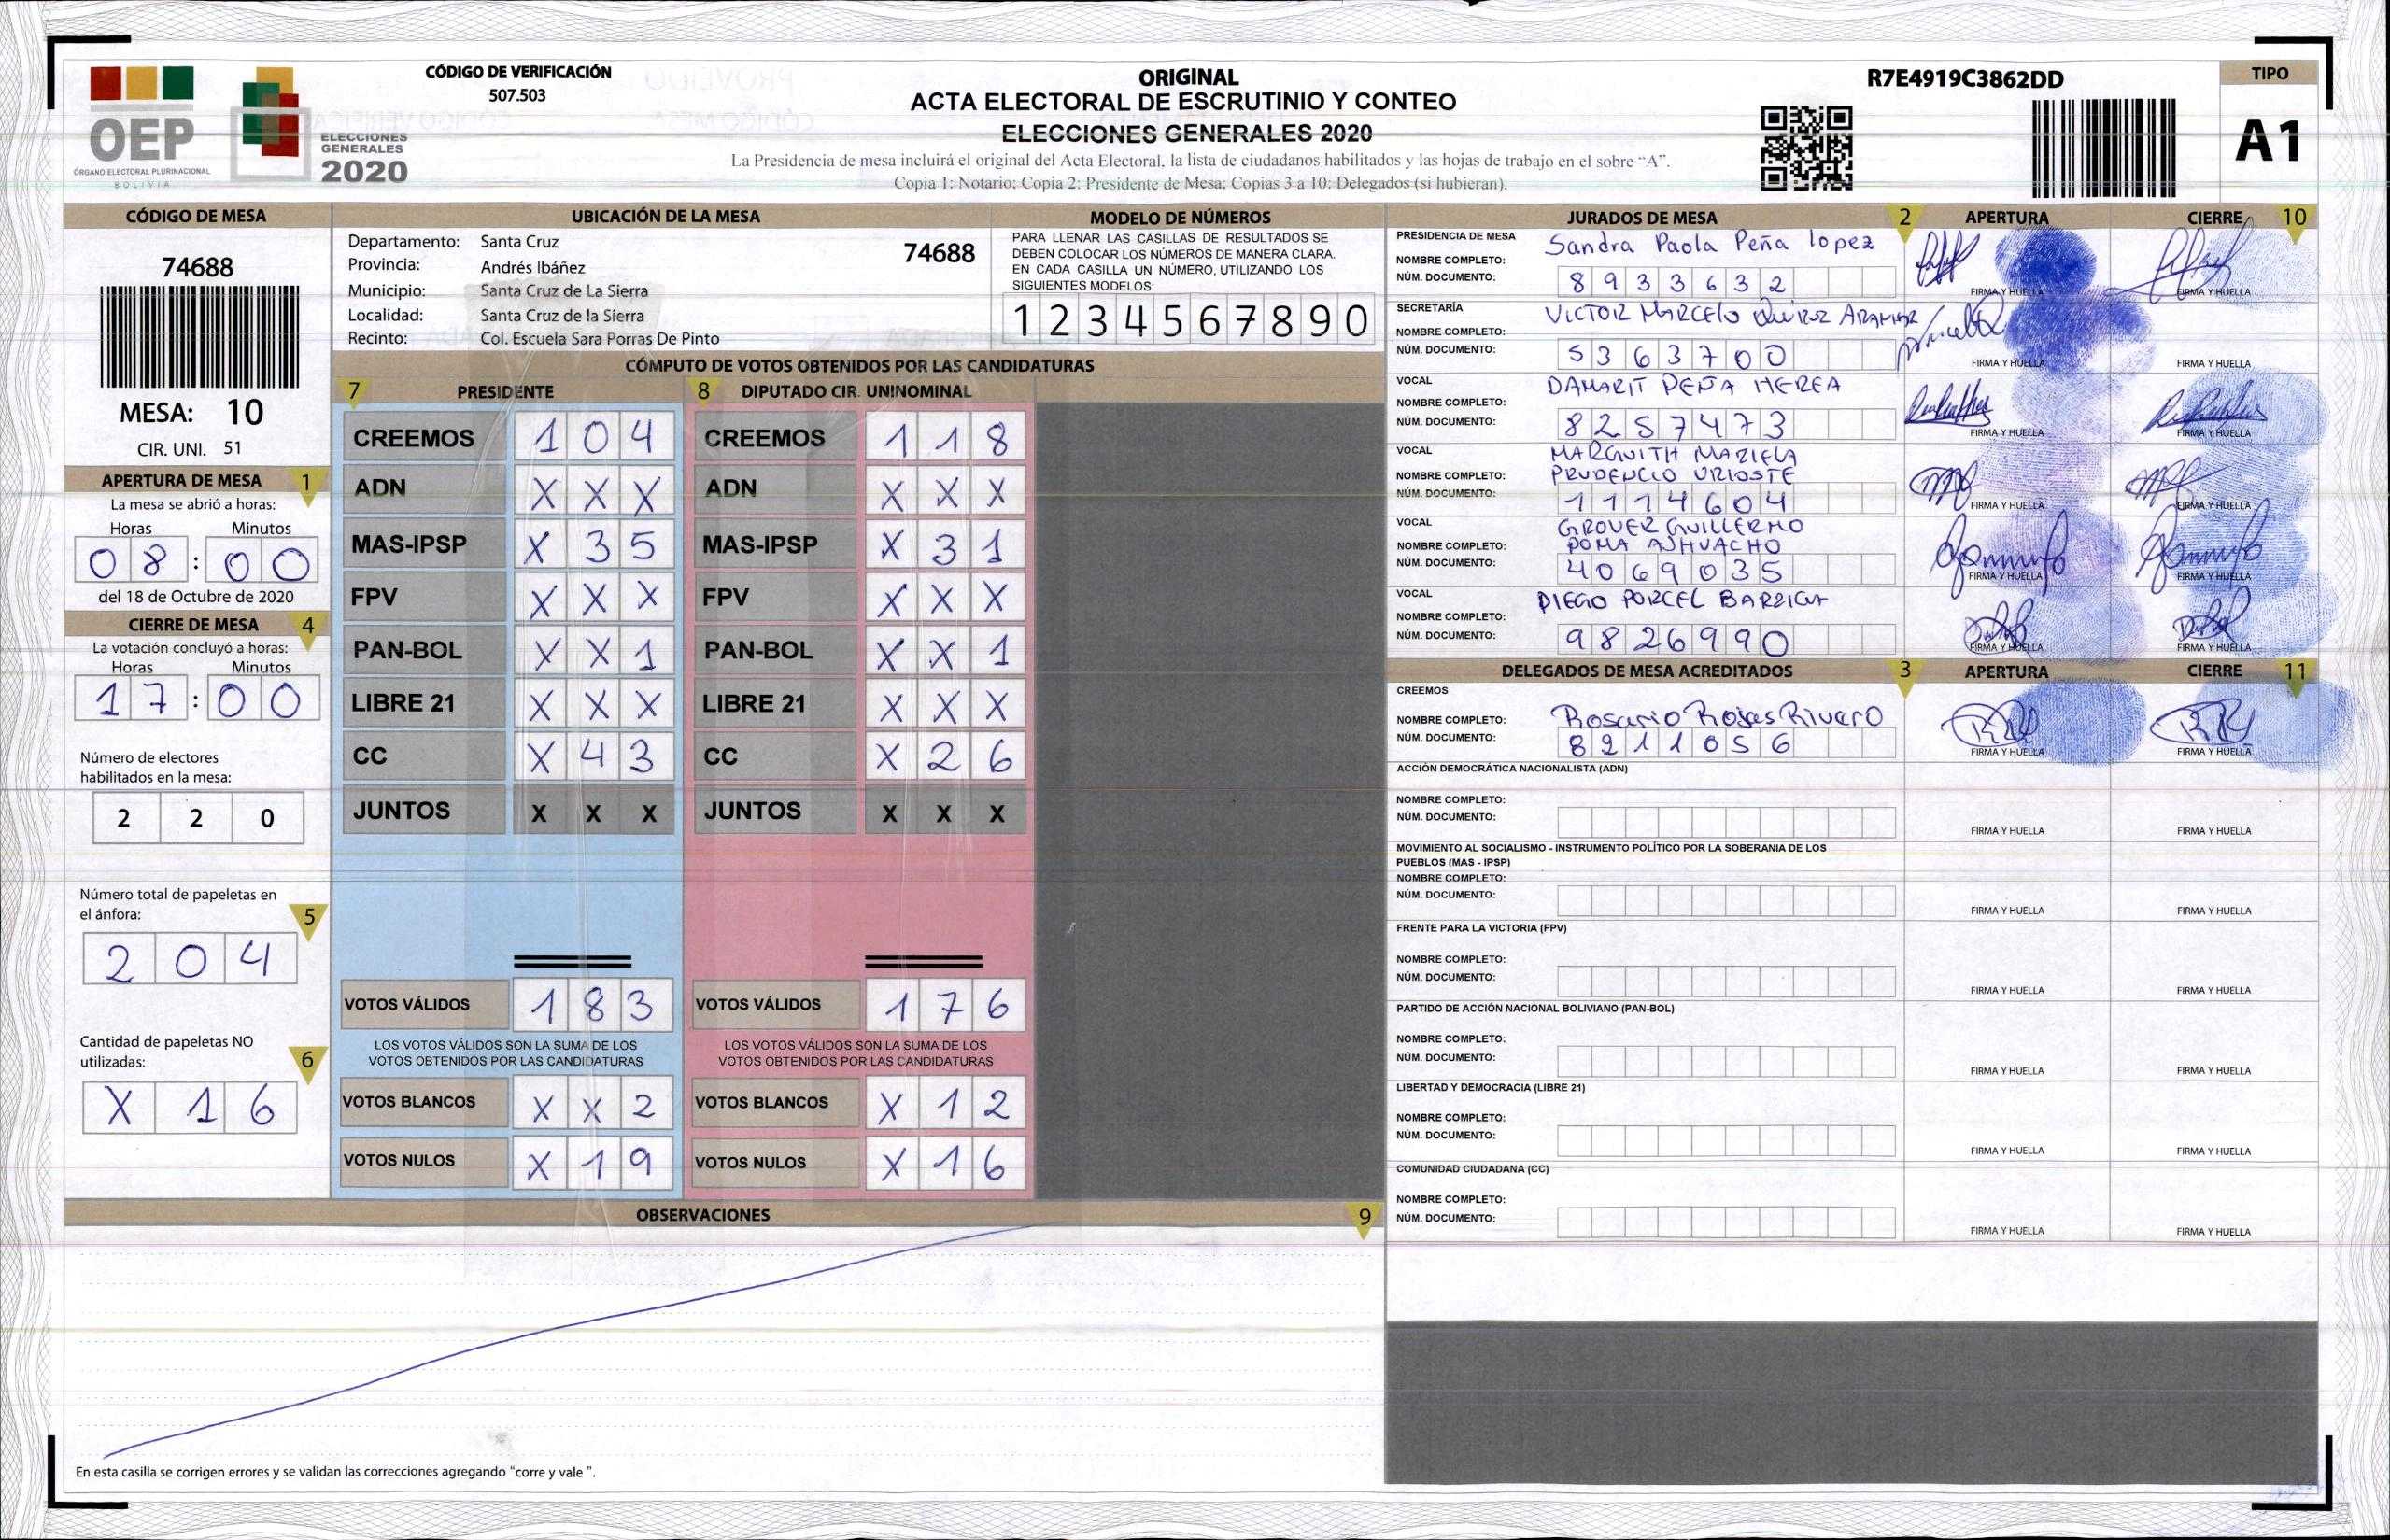 CÓDIGO DE VERIFICACIÓN
507.503
OEP
ÓRGANO ELECTORAL PLURINACIONAL
BOLIVIA
ELECCIONES
GENERALES
2020
ORIGINAL
ACTA ELECTORAL DE ESCRUTINIO Y CONTEO
ELECCIONES GENERALES 2020
La Presidencia de mesa incluirá el original del Acta Electoral, la lista de ciudadanos habilitados y las hojas de trabajo en el sobre “A”.
Copia 1: Notario; Copia 2: Presidente de Mesa; Copias 3 a 10: Delegados (si hubieran).
R7E4919C3862DD
TIPO
A1
CÓDIGO DE MESA
74688
MESA: 10
CIR. UNI. 51
APERTURA DE MESA 1
La mesa se abrió a horas:
Horas Minutos
08:00
del 18 de Octubre de 2020
CIERRE DE MESA 4
La votación concluyó a horas:
Horas Minutos
17:00
Número de electores
habilitados en la mesa:
2 2 0
Número total de papeletas en
el ánfora: 5
2 0 4
Cantidad de papeletas NO
utilizadas: 6
X 1 6
UBICACIÓN DE LA MESA
Departamento: Santa Cruz 74688
Provincia: Andrés Ibáñez
Municipio: Santa Cruz de La Sierra
Localidad: Santa Cruz de la Sierra
Recinto: Col. Escuela Sara Porras De Pinto
MODELO DE NÚMEROS
PARA LLENAR LAS CASILLAS DE RESULTADOS SE
DEBEN COLOCAR LOS NÚMEROS DE MANERA CLARA.
EN CADA CASILLA UN NÚMERO, UTILIZANDO LOS
SIGUIENTES MODELOS:
1 2 3 4 5 6 7 8 9 0
CÓMPUTO DE VOTOS OBTENIDOS POR LAS CANDIDATURAS
7 PRESIDENTE 8 DIPUTADO CIR. UNINOMINAL
CREEMOS 1 0 4 CREEMOS 1 1 8
ADN X X X ADN X X X
MAS-IPSP X 3 5 MAS-IPSP X 3 1
FPV X X X FPV X X X
PAN-BOL X X 1 PAN-BOL X X 1
LIBRE 21 X X X LIBRE 21 X X X
CC X 4 3 CC X 2 6
JUNTOS X X X JUNTOS X X X
VOTOS VÁLIDOS 1 8 3 VOTOS VÁLIDOS 1 7 6
LOS VOTOS VÁLIDOS SON LA SUMA DE LOS LOS VOTOS VÁLIDOS SON LA SUMA DE LOS
VOTOS OBTENIDOS POR LAS CANDIDATURAS VOTOS OBTENIDOS POR LAS CANDIDATURAS
VOTOS BLANCOS X X 2 VOTOS BLANCOS X 1 2
VOTOS NULOS X 1 9 VOTOS NULOS X 1 6
OBSERVACIONES 9
En esta casilla se corrigen errores y se validan las correcciones agregando “corre y vale ”.
JURADOS DE MESA 2 APERTURA CIERRE 10
PRESIDENCIA DE MESA
NOMBRE COMPLETO: Sandra Paola Peña lopez
NÚM. DOCUMENTO: 8933632
FIRMA Y HUELLA FIRMA Y HUELLA
SECRETARÍA
NOMBRE COMPLETO: VICTOR MARCELO QUIROZ
NÚM. DOCUMENTO: 5363700
FIRMA Y HUELLA FIRMA Y HUELLA
VOCAL
NOMBRE COMPLETO: DAMARIT PEÑA MEREA
NÚM. DOCUMENTO: 8257473
FIRMA Y HUELLA FIRMA Y HUELLA
VOCAL
NOMBRE COMPLETO: MARGUITH MARIELA
PRUDENCIO URIOSTE
NÚM. DOCUMENTO: 1114604
FIRMA Y HUELLA FIRMA Y HUELLA
VOCAL
NOMBRE COMPLETO: GROVER GUILLERMO
POMA AJHUACHO
NÚM. DOCUMENTO: 4069035
FIRMA Y HUELLA FIRMA Y HUELLA
VOCAL
NOMBRE COMPLETO: DIEGO PORCEL BARRIGA
NÚM. DOCUMENTO: 9826990
FIRMA Y HUELLA FIRMA Y HUELLA
DELEGADOS DE MESA ACREDITADOS 3 APERTURA CIERRE 11
CREEMOS
NOMBRE COMPLETO: Rosario Rojas Rivero
NÚM. DOCUMENTO: 8211056
FIRMA Y HUELLA FIRMA Y HUELLA
ACCIÓN DEMOCRÁTICA NACIONALISTA (ADN)
NOMBRE COMPLETO:
NÚM. DOCUMENTO:
FIRMA Y HUELLA FIRMA Y HUELLA
MOVIMIENTO AL SOCIALISMO - INSTRUMENTO POLÍTICO POR LA SOBERANIA DE LOS
PUEBLOS (MAS - IPSP)
NOMBRE COMPLETO:
NÚM. DOCUMENTO:
FIRMA Y HUELLA FIRMA Y HUELLA
FRENTE PARA LA VICTORIA (FPV)
NOMBRE COMPLETO:
NÚM. DOCUMENTO:
FIRMA Y HUELLA FIRMA Y HUELLA
PARTIDO DE ACCIÓN NACIONAL BOLIVIANO (PAN-BOL)
NOMBRE COMPLETO:
NÚM. DOCUMENTO:
FIRMA Y HUELLA FIRMA Y HUELLA
LIBERTAD Y DEMOCRACIA (LIBRE 21)
NOMBRE COMPLETO:
NÚM. DOCUMENTO:
FIRMA Y HUELLA FIRMA Y HUELLA
COMUNIDAD CIUDADANA (CC)
NOMBRE COMPLETO:
NÚM. DOCUMENTO:
FIRMA Y HUELLA FIRMA Y HUELLA